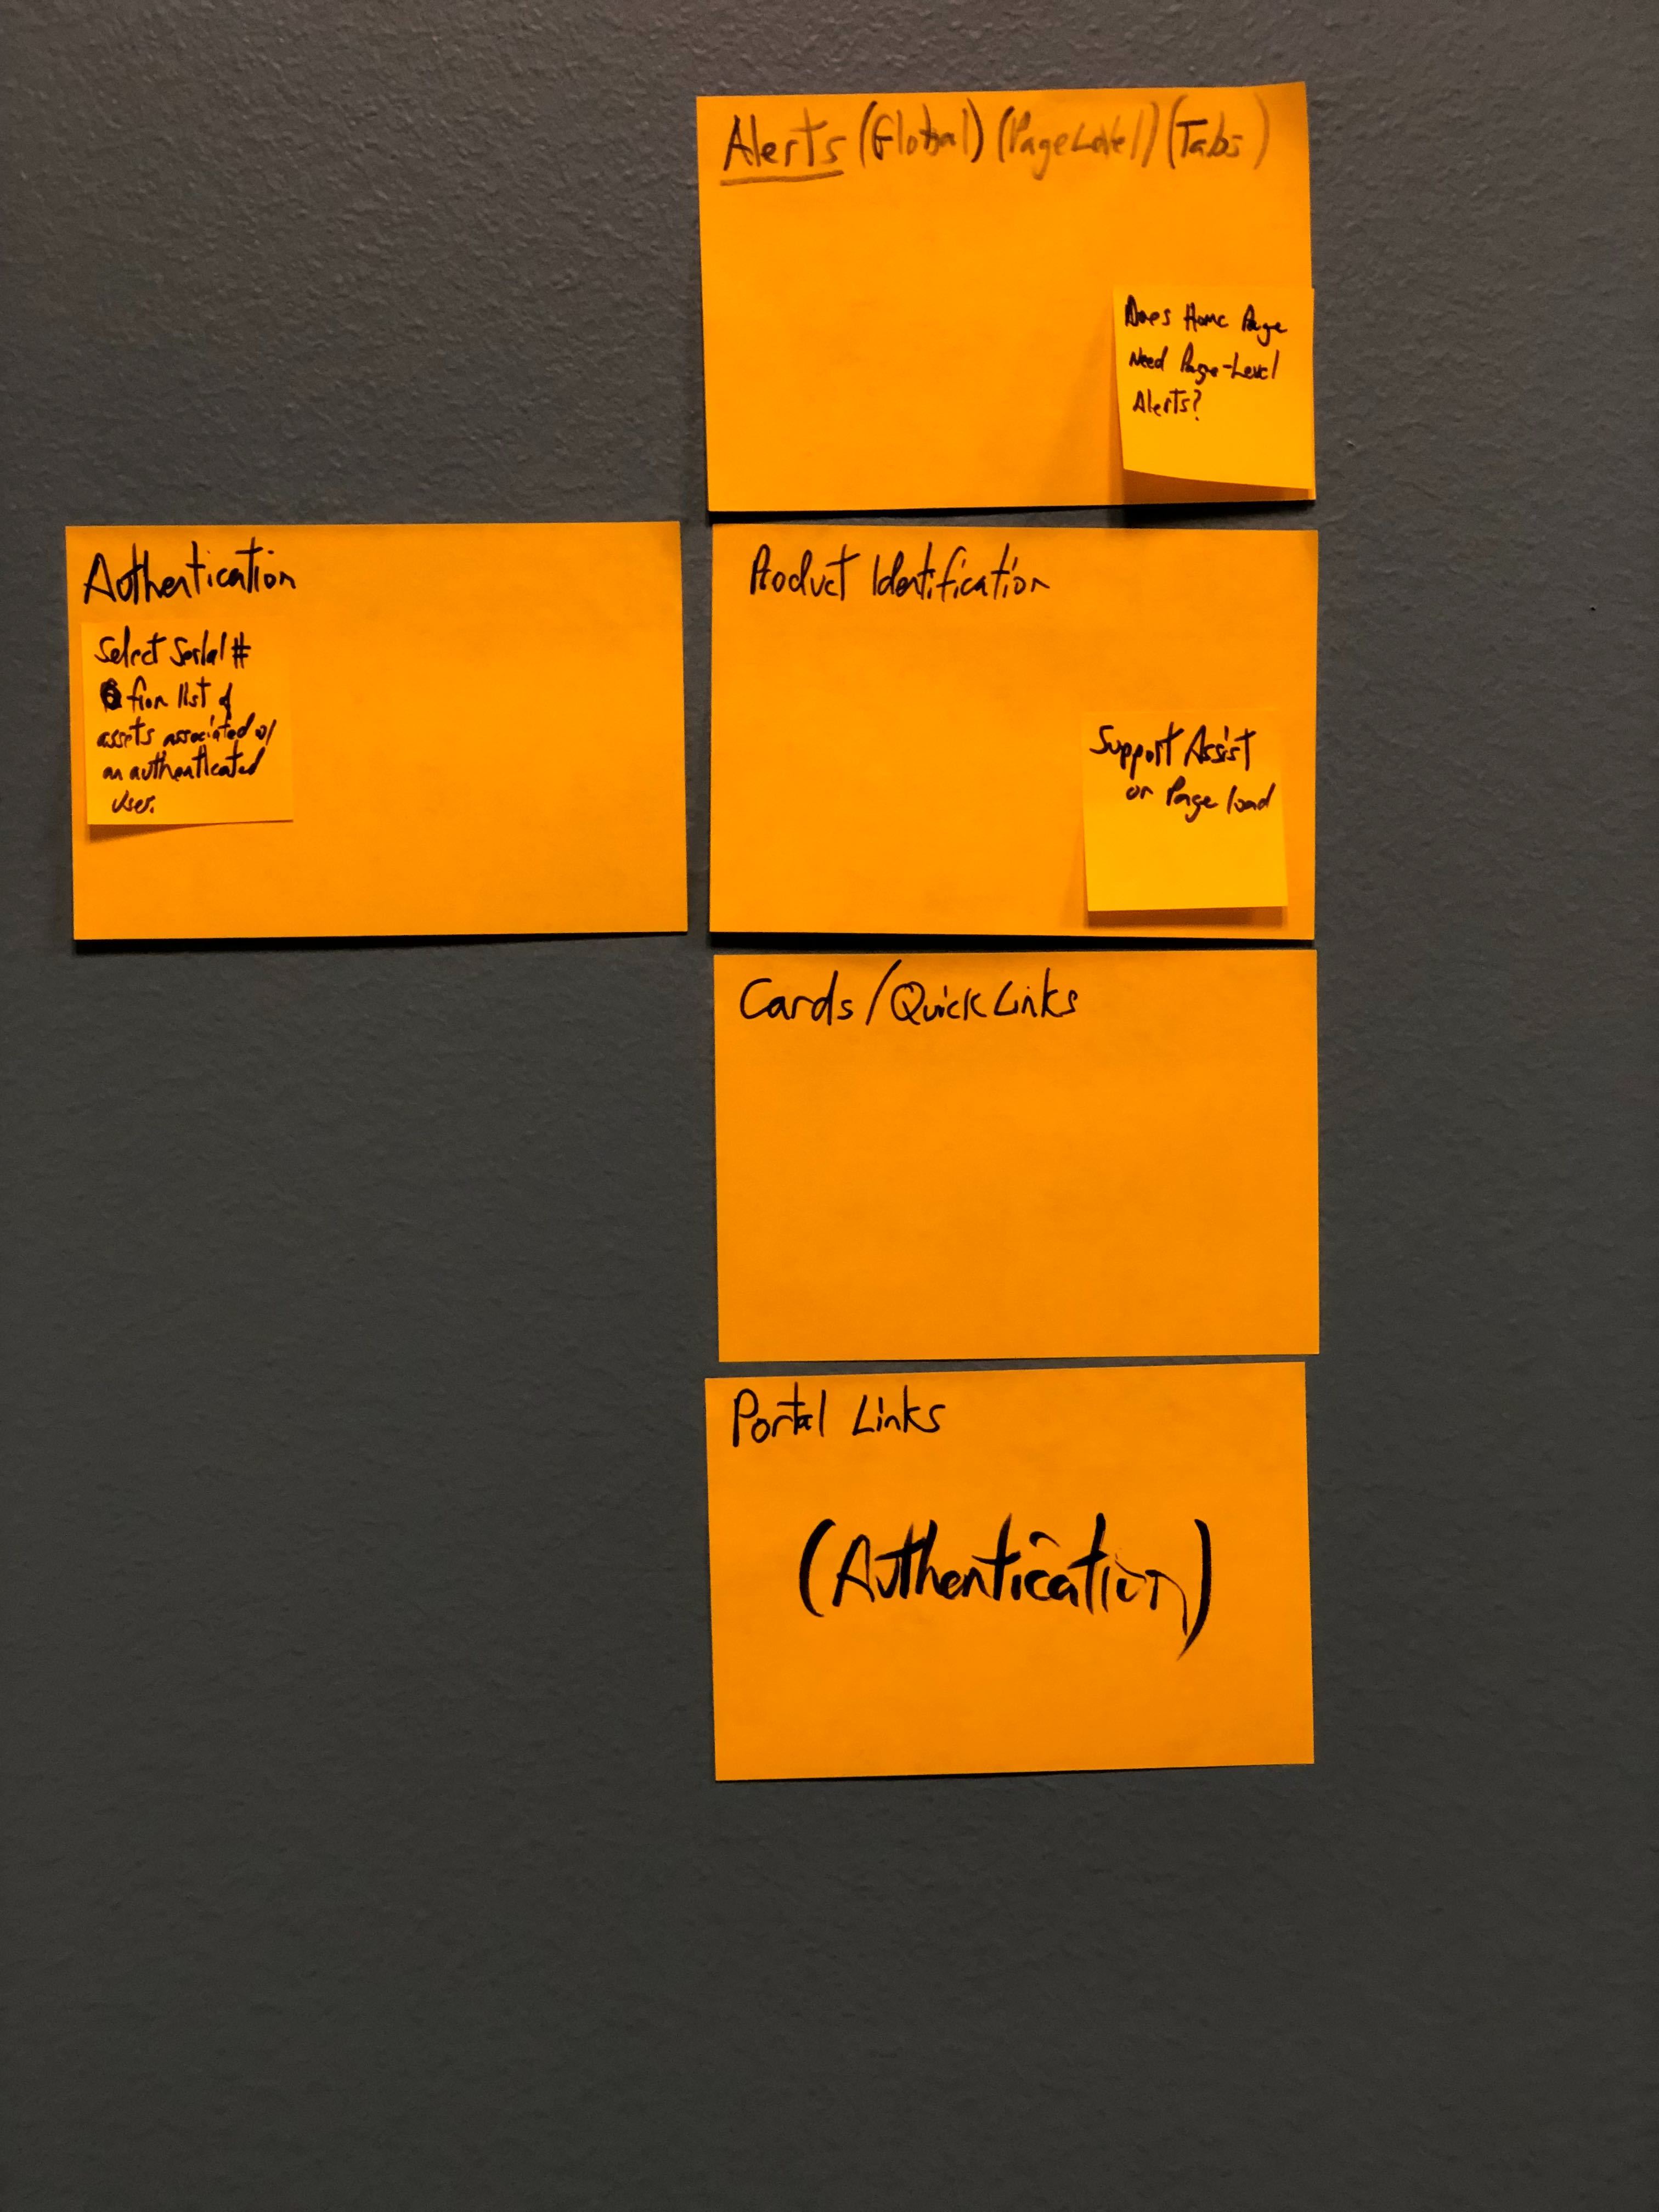 Alerts (Global) (Page Level) (Tabs)
Does Home Page
Need Page-Level
Alerts?
Authentication
Select Serial #
from list of
assets associated w/
an authenticated
user.
Product Identification
Support Assist
on Page load
Cards/Quick Links
Portal Links
(Authentication)